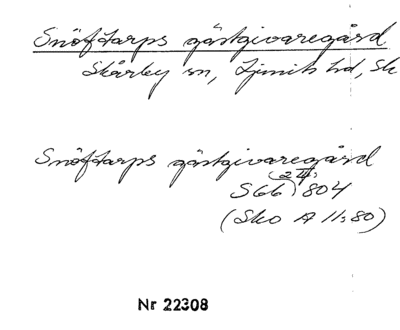 Snöftarps gästgivaregård
Skårby sn, Ljunits hd, Sk
Snöftarps gästgivaregård
(24)
S66) 804
(Sko A II:80)
Nr 22308